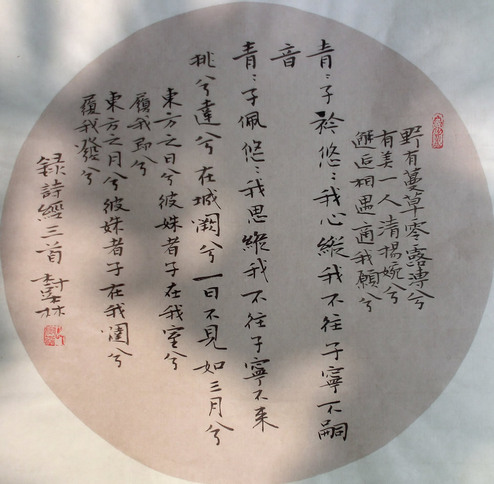 野有蔓草零露漙兮
有美一人清揚婉兮
邂逅相遇適我願兮
青〻子衿悠〻我心縱我不往子寧不嗣
音
青〻子佩悠〻我思縱我不往子寧不来
挑兮達兮在城闕兮一日不見如三月兮
東方之日兮彼姝者子在我室兮
履我即兮
東方之月兮彼姝者子在我闥兮
履我發兮
録詩經三首